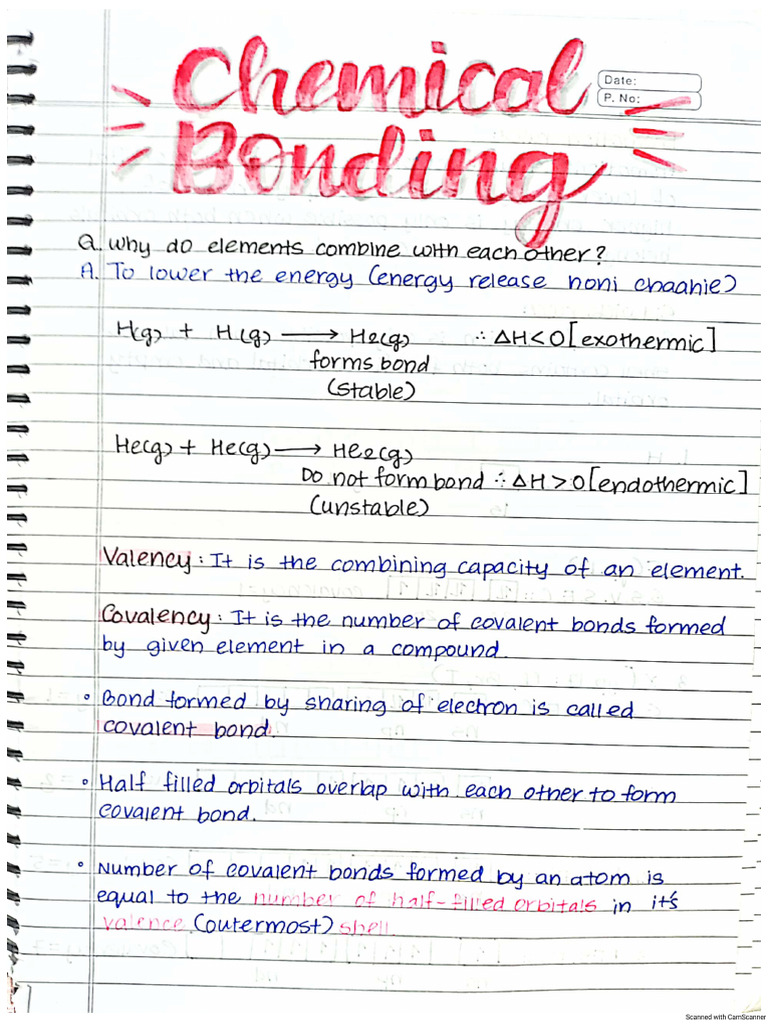 Chemical
Bonding
Date:
P. No:
Q. Why do elements combine with each other?
A. To lower the energy (energy release honi chaahie)
H(g) + H(g) ⟶ H2(g) ∴ ΔH<0[exothermic]
forms bond
(stable)
He(g) + He(g) ⟶ He2(g)
Do not form bond ∴ ΔH>0[endothermic]
(unstable)
Valency: It is the combining capacity of an element.
Covalency: It is the number of covalent bonds formed
by given element in a compound.
• Bond formed by sharing of electron is called
covalent bond.
• Half filled orbitals overlap with each other to form
covalent bond.
• Number of covalent bonds formed by an atom is
equal to the number of half-filled orbitals in it's
valence (outermost) shell.
Scanned with CamScanner